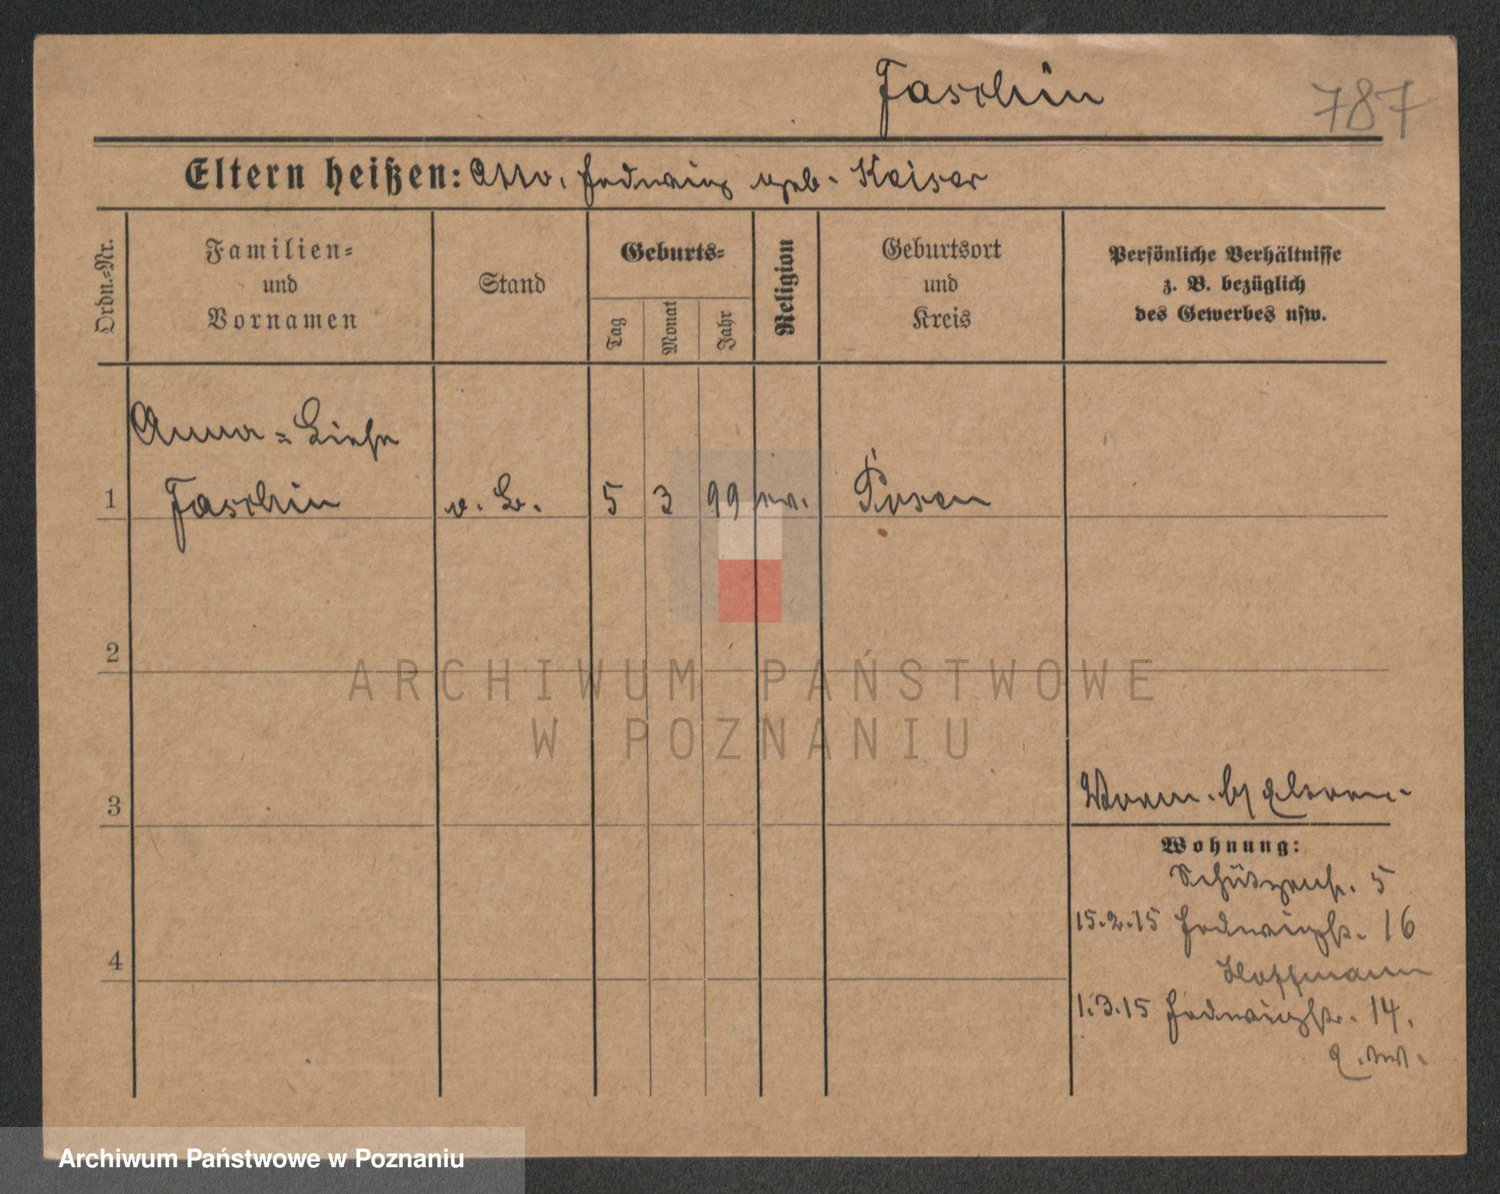 Faschin
787
Eltern heißen: Otto, Hedwig geb. Kaiser
Ordn.=Nr.
Familien=
und
Vornamen
Stand
Geburts=
Tag
Monat
Jahr
Religion
Geburtsort
und
Kreis
Persönliche Verhältnisse
z. B. bezüglich
des Gewerbes usw.
Anna=Liese
1 Faschin o. B. 5 3 99 ev. Posen
2
3
4
b/ Eltern.
Wohnung:
Schützenstr. 5
15.2.15 Hedwigstr. 16
Hoffmann
1.3.15 Hedwigstr. 14.
ARCHIWUM PAŃSTWOWE
W POZNANIU
Archiwum Państwowe w Poznaniu